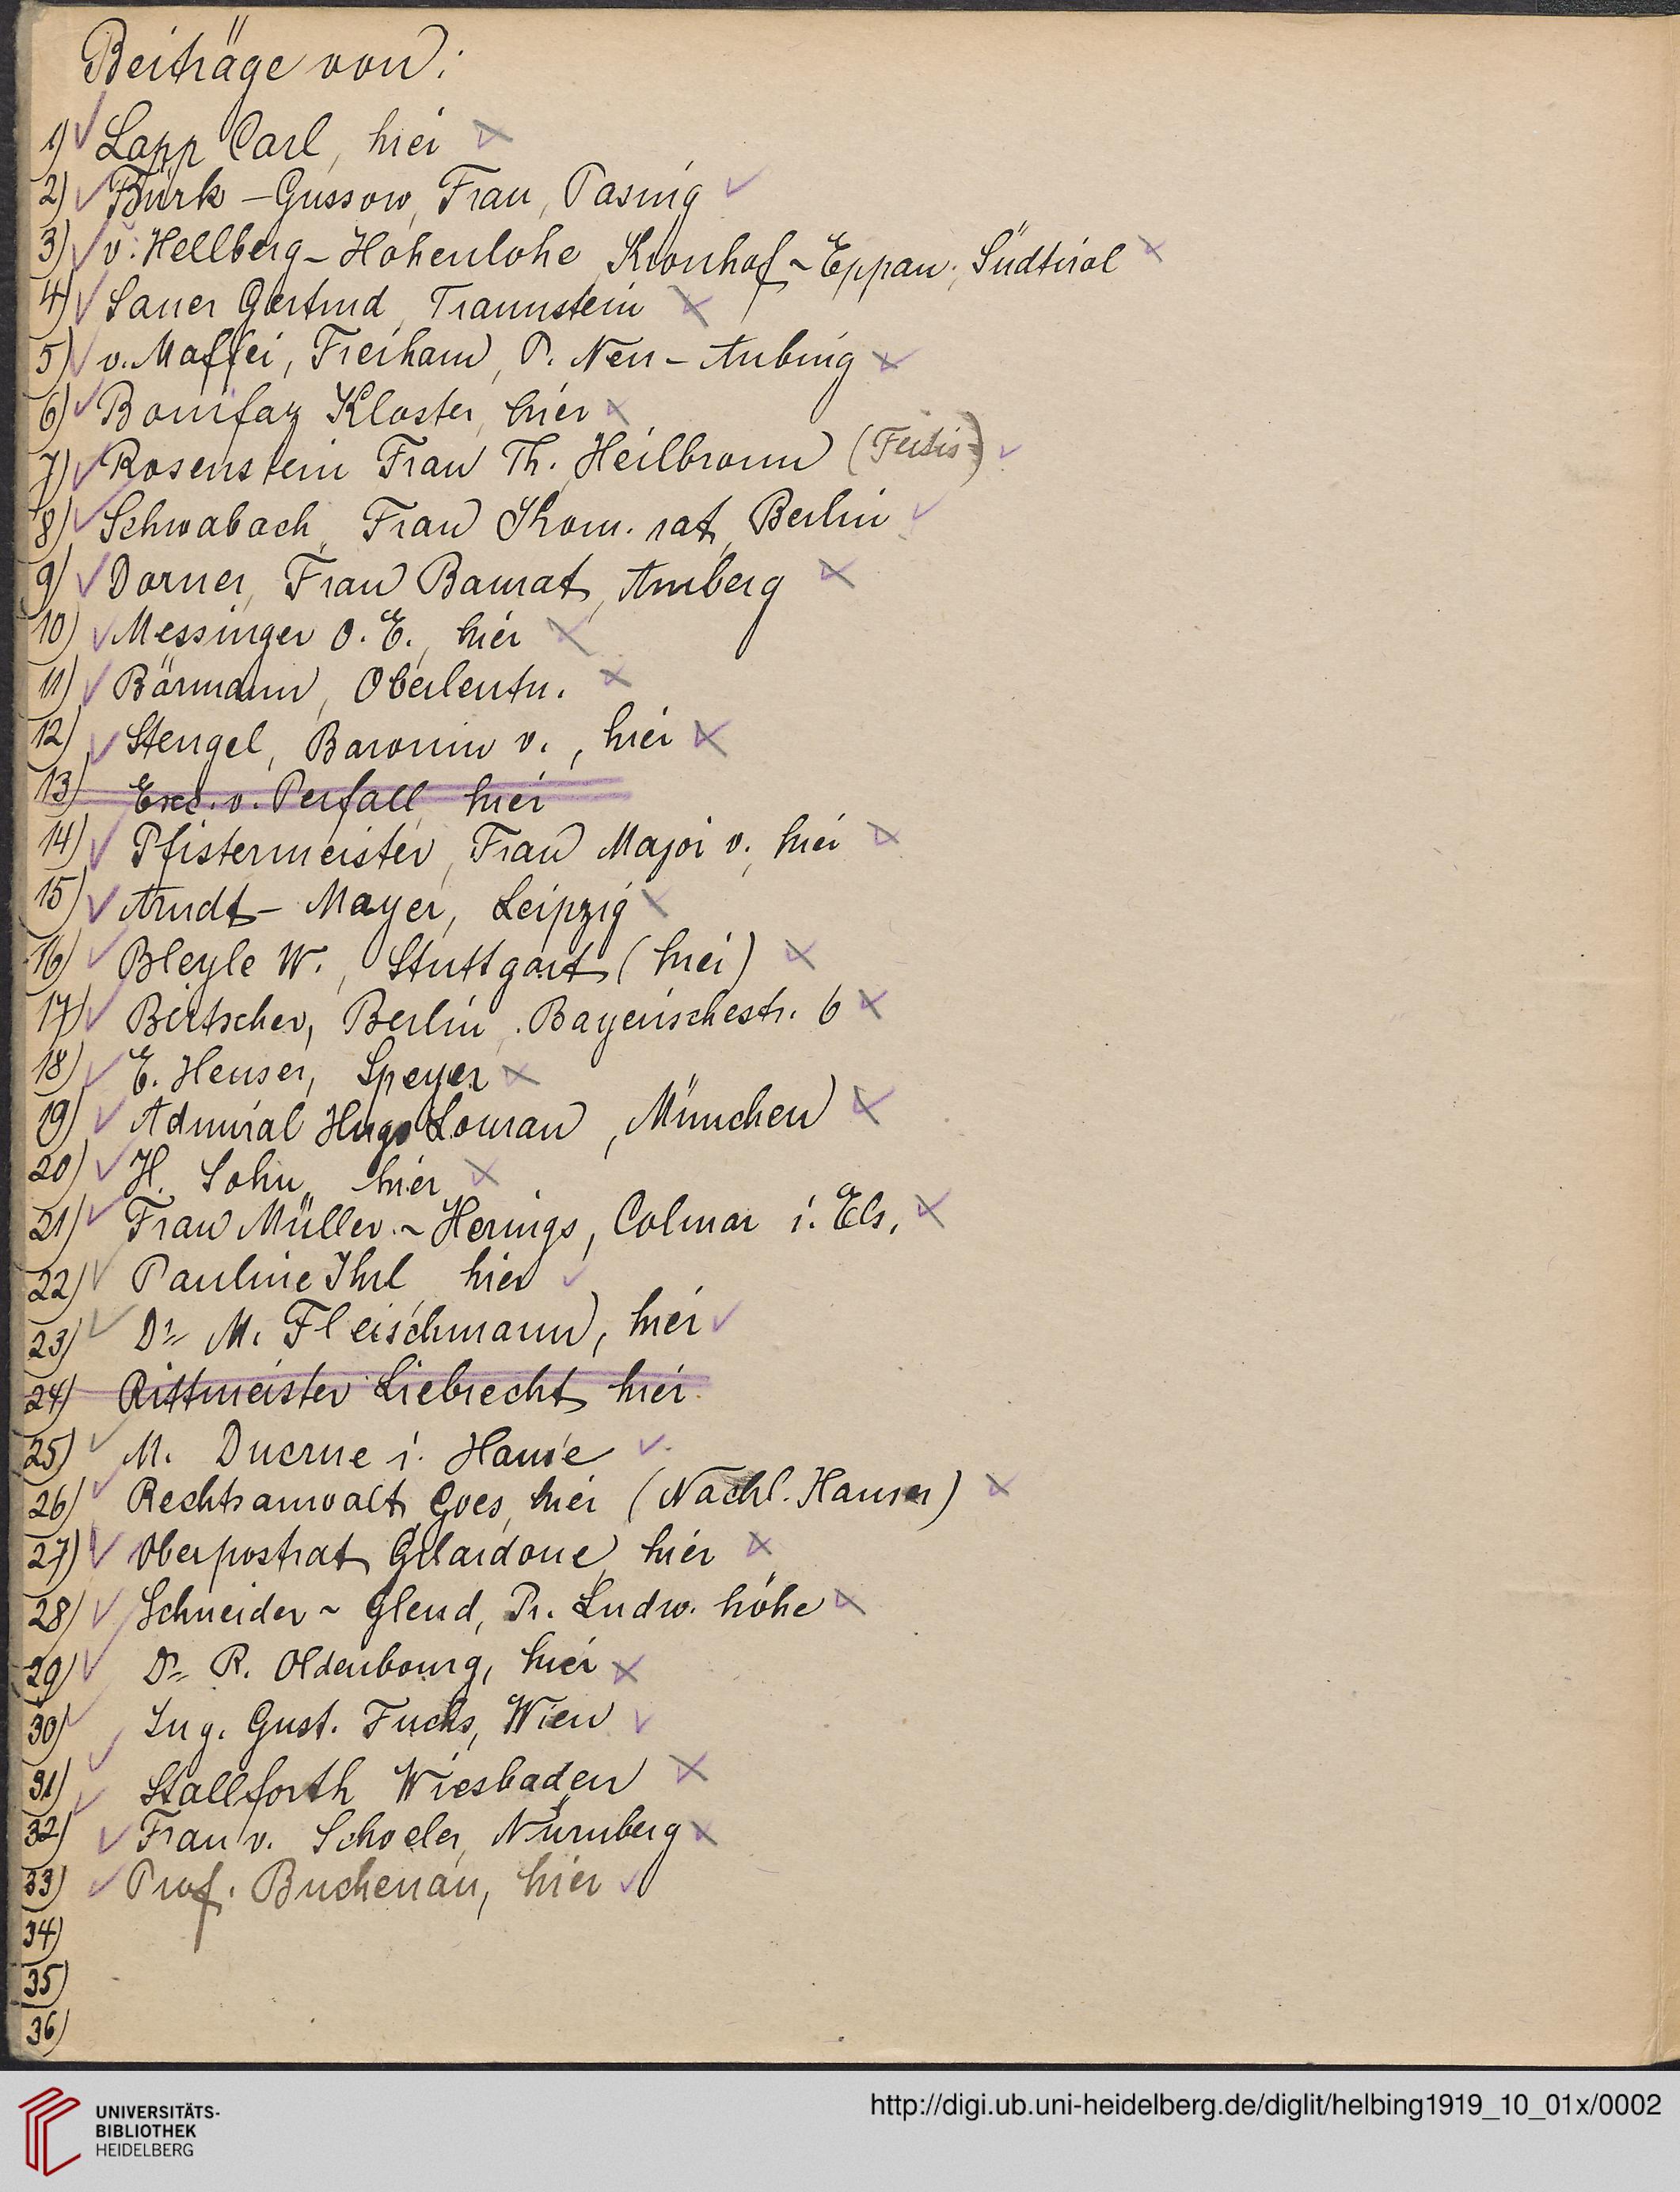 Beiträge von:
1) Lapp Carl, hier
2) Bürk - Gussow, Frau, Pasing
3) v. Hellberg - Hohenlohe Kronhof - Eppan, Südtirol
4) Sauer Gertrud, Traunstein
5) v. Maffei, Freiham, P. Neu - Aubing
6) Bonifaz Kloster, hier
7) Rosenstein Frau Th. Heilbronn
8) Schwabach, Frau Kom. rat, Berlin
9) Dorner, Frau Baurat, Amberg
10) Messinger O. E., hier
11) Bärmann, Oberleutn.
12) Stengel, Baronin v., hier
13) Exc. v. Perfall, hier
14) Pfistermeister, Frau Major v., hier
15) Arndt - Mayer, Leipzig
16) Bleyle W., Stuttgart (hier)
17) Birtscher, Berlin, Bayerischestr. 6
18) E. Heuser, Speyer
19) Admiral Hugo Louran, München
20) H. Sohn, hier
21) Frau Müller - Herings, Colmar i. Els.
22) Pauline Ihrl, hier
23) Dr. M. Fleischmann, hier
24) Rittmeister Liebrecht, hier
25) M. Ducrue i. Hause
26) Rechtsanwalt Goes, hier (Nachl. Hauser)
27) Oberpostrat Gilardone, hier
28) Schneider - Glend, Pr. Ludw. höhe
29) Dr. R. Oldenbourg, hier
30) Ing. Gust. Fuchs, Wien
31) Stallforth Wiesbaden
32) Frau v. Schoeler, Nürnberg
33) Prof. Buchenau, hier
34)
35)
36)
UNIVERSITÄTS-
BIBLIOTHEK
HEIDELBERG
http://digi.ub.uni-heidelberg.de/diglit/helbing1919_10_01x/0002